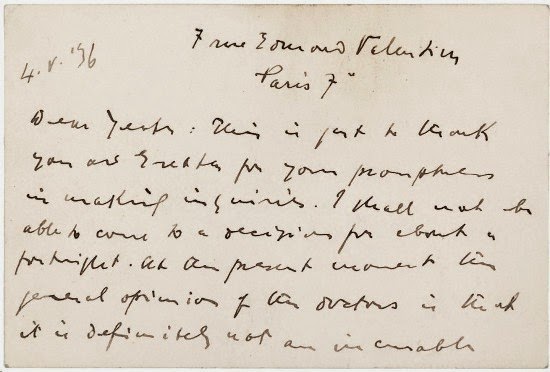 7 rue Edmond Valentin
4.V.'36
Paris 7e
Dear Yeats: This is just to thank
you and for your promptness
in making inquiries. I shall not be
able to come to a decision for about a
fortnight. At the present moment the
general opinion of the doctors is that
it is definitely not an incurable